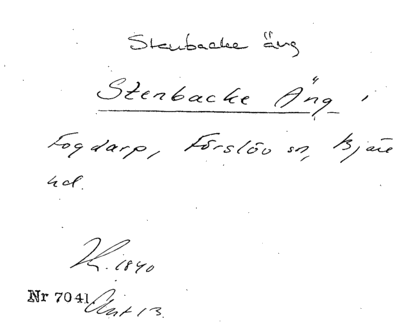 Stenbacke äng
Stenbacke Äng,
Fogdarp, Förslöv sn, Bjäre
hd.
1840
Nr 7041 Akt 13.